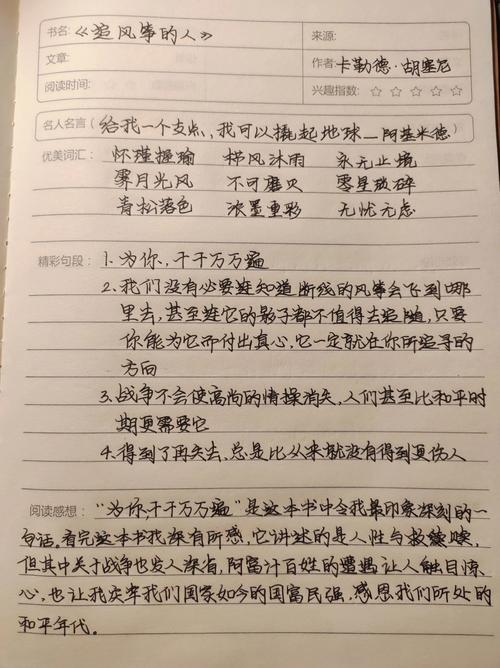 书名:《追风筝的人》 来源:
文章: 作者:卡勒德·胡塞尼
阅读时间: 兴趣指数: ☆ ☆ ☆ ☆ ☆
名人名言(给我一个支点,我可以撬起地球—阿基米德)
优美词汇: 怀瑾握瑜 栉风沐雨 永无止境
霁月光风 不可磨灭 零星破碎
青松落色 浓墨重彩 无忧无虑
精彩句段: 1.为你,千千万万遍
2.我们没有必要建知道断线的风筝会飞到哪
里去,甚至连它的影子都不值得去追随,只要
你能为它而付出真心,它一定就在你所追寻的
方向
3.战争不会使高尚的情操消失,人们甚至比和平时
期更需要它
4.得到了再失去,总是比从来就没有得到更伤人
阅读感想: "为你,千千万万遍"是这本书中令我最印象深刻的一
句话。看完这本书我深有所感,它讲述的是人性与救赎,
但其中关于战争也发人深省,阿富汗百姓的遭遇让人触目惊
心,也让我庆幸我们国家如今的国富民强,感恩我们所处的
和平年代。